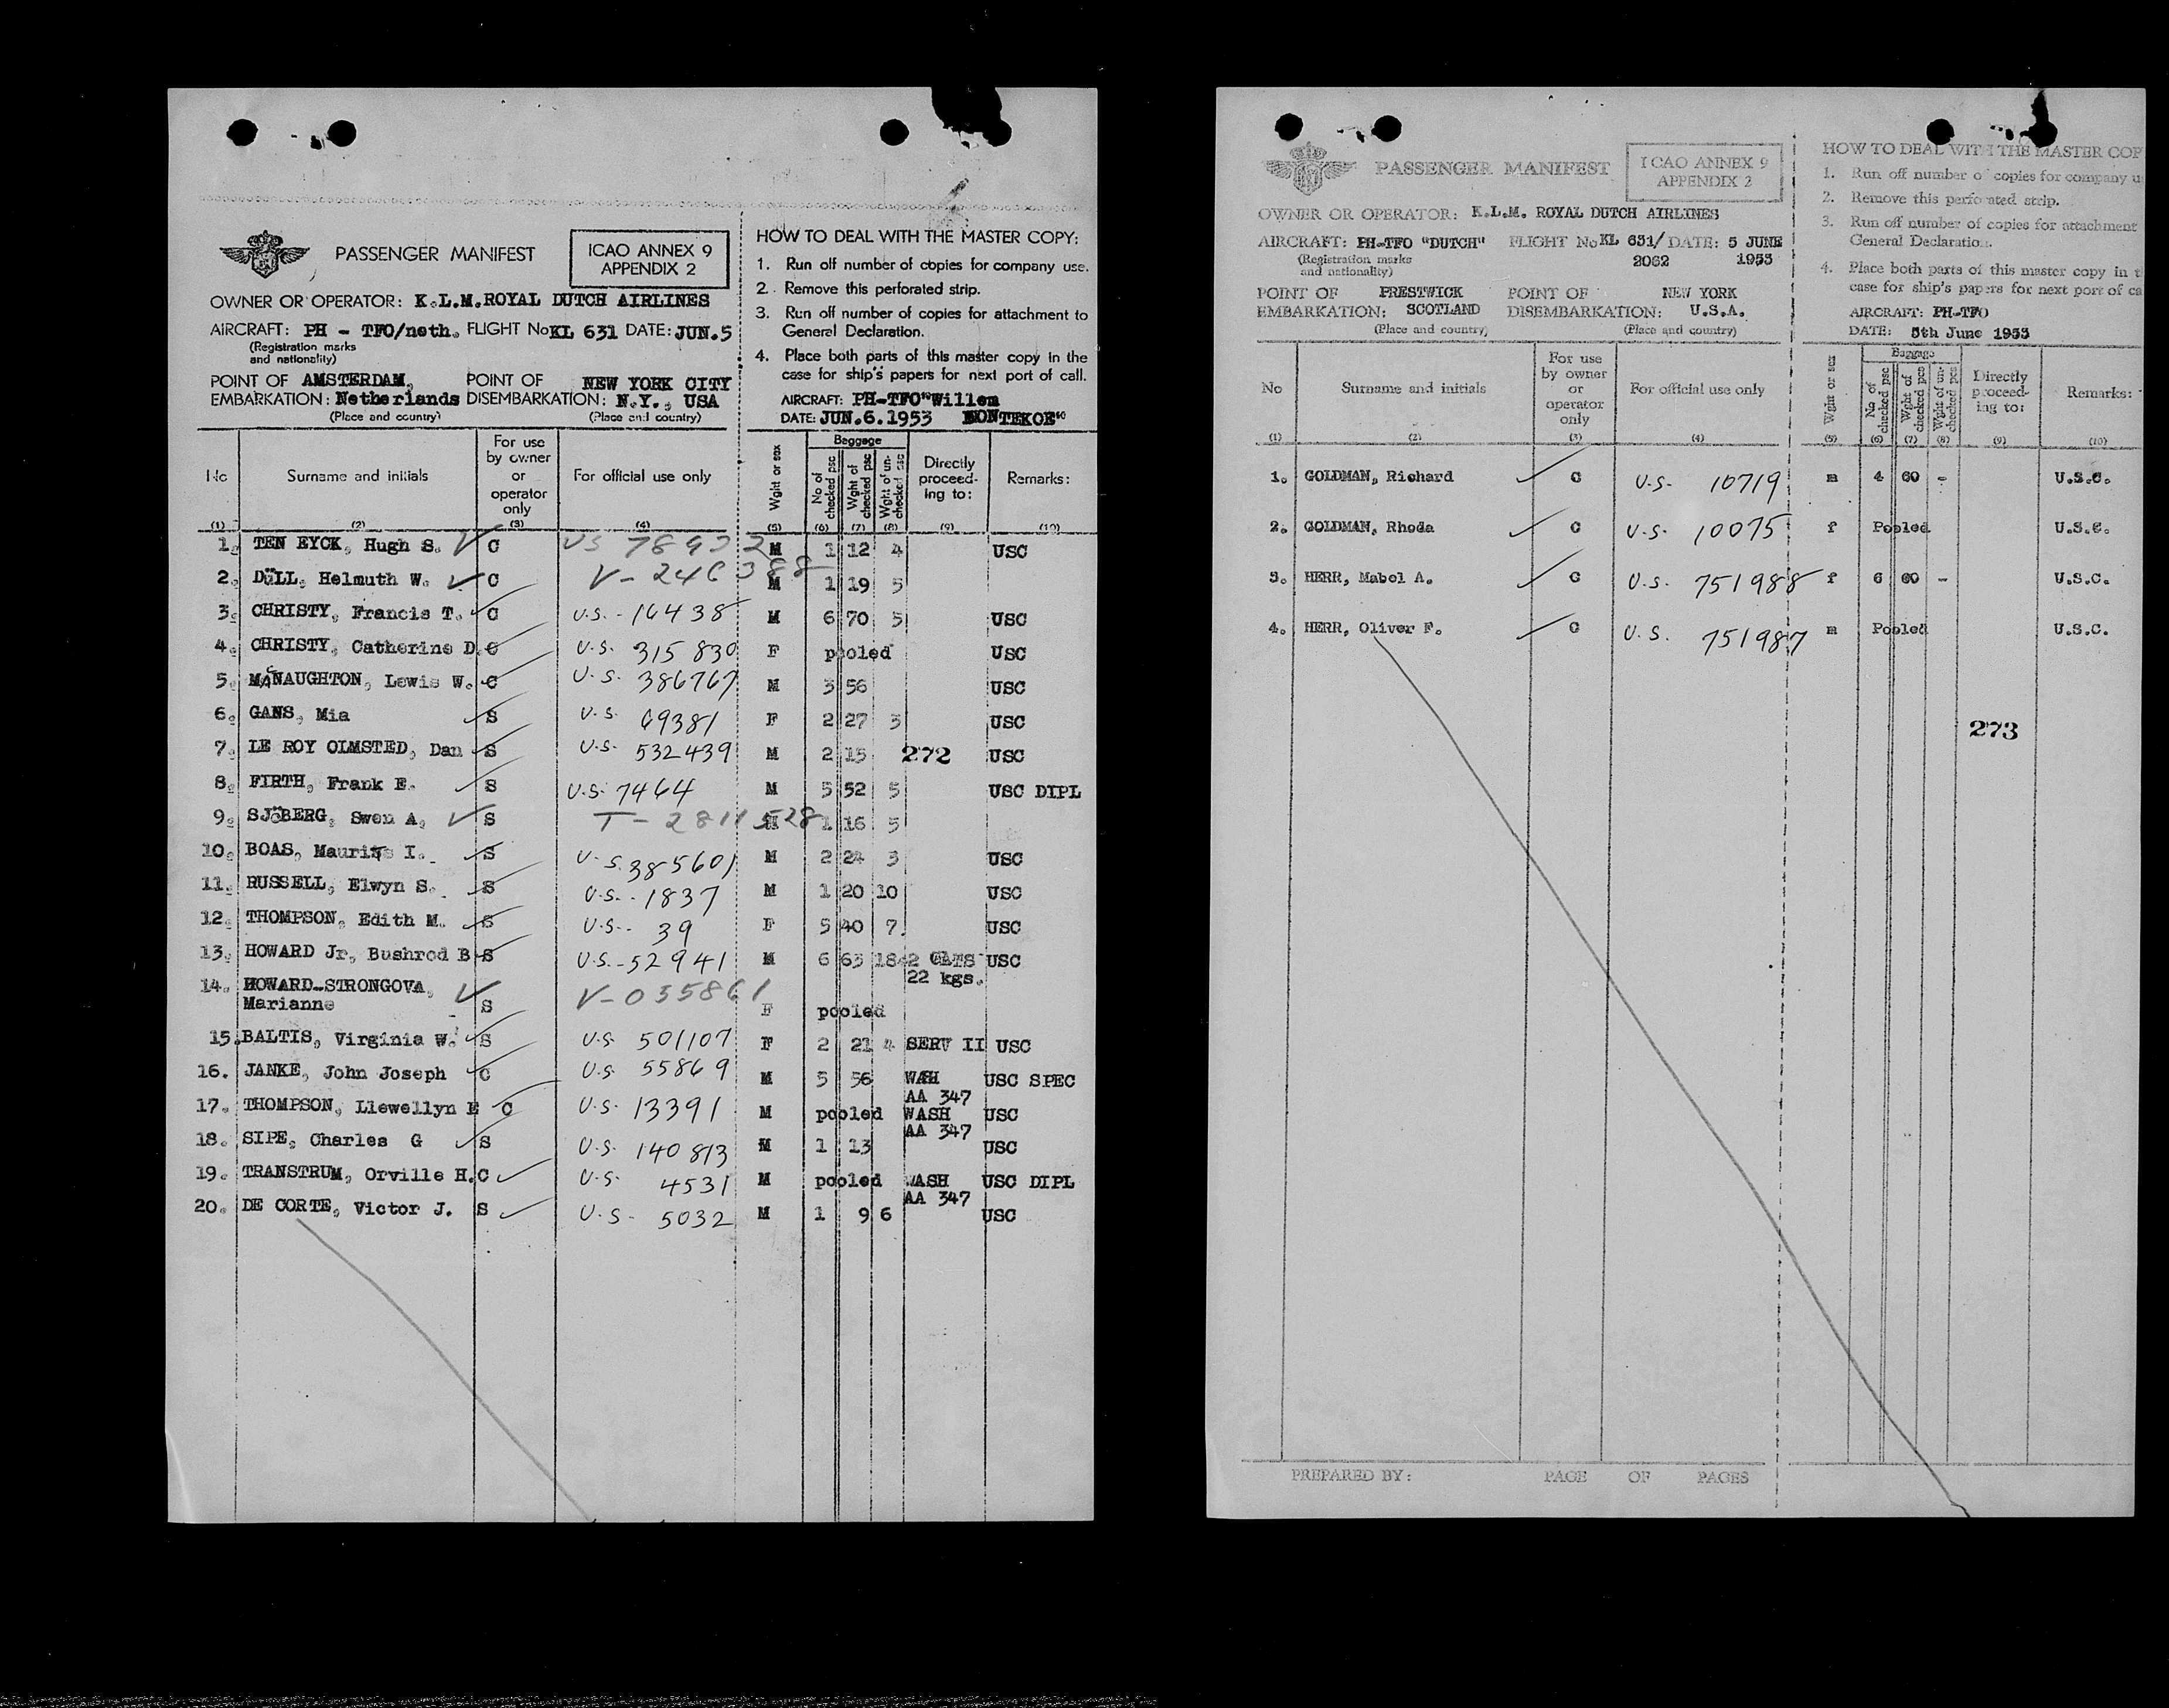 PASSENGER MANIFEST
ICAO ANNEX 9
APPENDIX 2
OWNER OR OPERATOR: K.L.M.ROYAL DUTCH AIRLINES
AIRCRAFT: PH - TFO/neth. FLIGHT No KL 631 DATE: JUN.5
(Registration marks
and nationality)
POINT OF AMSTERDAM, POINT OF NEW YORK CITY
EMBARKATION: Netherlands DISEMBARKATION: N.Y., USA
(Place and country) (Place and country)
HOW TO DEAL WITH THE MASTER COPY:
1. Run off number of copies for company use.
2. Remove this perforated strip.
3. Run off number of copies for attachment to
General Declaration.
4. Place both parts of this master copy in the
case for ship's papers for next port of call.
AIRCRAFT: PH-TFO"Willem
DATE: JUN.6.1953 BONTEKOE"
No Surname and initials For use by owner or operator only For official use only Wght or sex Baggage No of checked psc Wght of checked psc Wght of un-checked psc Directly proceed-ing to: Remarks:
(1) (2) (3) (4) (5) (6) (7) (8) (9) (10)
1. TEN EYCK, Hugh S. C US M 1 12 4 USC
2. DüLL, Helmuth W. C V-246388 M 1 19 5
3. CHRISTY, Francis T. C U.S.-16438 M 6 70 5 USC
4. CHRISTY, Catherine D. C U.S. 315830 F pooled USC
5. McNAUGHTON, Lewis W. C U.S. 386767 M 3 56 USC
6. GANS, Mia S U.S. 69381 F 2 27 3 USC
7. LE ROY OLMSTED, Dan S U.S. 532439 M 2 15 272 USC
8. FIRTH, Frank E. S U.S. 7464 M 5 52 5 USC DIPL
9. SJöBERG, Swen A. S T-2811528 M 1 16 5
10. BOAS, Maurits I. S U.S. 385601 M 2 24 3 USC
11. RUSSELL, Elwyn S. S U.S.-1837 M 1 20 10 USC
12. THOMPSON, Edith M. S U.S.- 39 F 5 40 7. USC
13. HOWARD Jr, Bushrod B S U.S.-52941 M 6 63 18 2 USC
22 kgs.
14. HOWARD-STRONGOVA,
Marianne S V-035861 F pooled
15. BALTIS, Virginia W. S U.S. 501107 F 2 21 4 SERV II USC
16. JANKE, John Joseph C U.S. 55869 M 5 56 WASH USC SPEC
AA 347
17. THOMPSON, Llewellyn E C U.S. 13391 M pooled WASH USC
AA 347
18. SIPE, Charles G S U.S. 140813 M 1 13 USC
19. TRANSTRUM, Orville H. C U.S. 4531 M pooled WASH USC DIPL
AA 347
20. DE CORTE, Victor J. S U.S- 5032 M 1 9 6 USC
PASSENGER MANIFEST
ICAO ANNEX 9
APPENDIX 2
OWNER OR OPERATOR: K.L.M. ROYAL DUTCH AIRLINES
AIRCRAFT: PH-TFO "DUTCH" FLIGHT No KL 631/ DATE: 5 JUNE
(Registration marks 2062 1953
and nationality)
POINT OF PRESTWICK POINT OF NEW YORK
EMBARKATION: SCOTLAND DISEMBARKATION: U.S.A.
(Place and country) (Place and country)
HOW TO DEAL WITH THE MASTER COP
1. Run off number of copies for company u
2. Remove this perforated strip.
3. Run off number of copies for attachment
General Declaration.
4. Place both parts of this master copy in t
case for ship's papers for next port of ca
AIRCRAFT: PH-TFO
DATE: 5th June 1953
No Surname and initials For use by owner or operator only For official use only Wght or sex Baggage No of checked psc Wght of checked pcs Wght of un-checked pcs Directly proceed-ing to: Remarks:
(1) (2) (3) (4) (5) (6) (7) (8) (9) (10)
1. GOLDMAN, Richard C U.S. 10719 m 4 60 - U.S.C.
2. GOLDMAN, Rhoda C U.S. 10075 f Pooled U.S.C.
3. HERR, Mabel A. C U.S. 751988 f 6 60 - U.S.C.
4. HERR, Oliver F. C U.S. 751987 m Pooled U.S.C.
273
PREPARED BY: PAGE OF PAGES